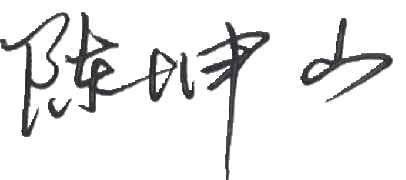 陈坤山